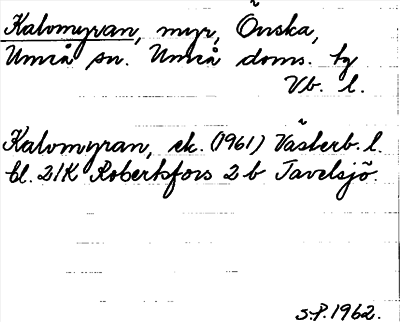 Kalvmyran, myr, Önska,
Umeå sn. Umeå doms. bg
Vb. l.
Kalvmyran, ek. (1961) Västerb. l.
bl. 21K Robertsfors 2b Tavelsjö.
S.P. 1962.